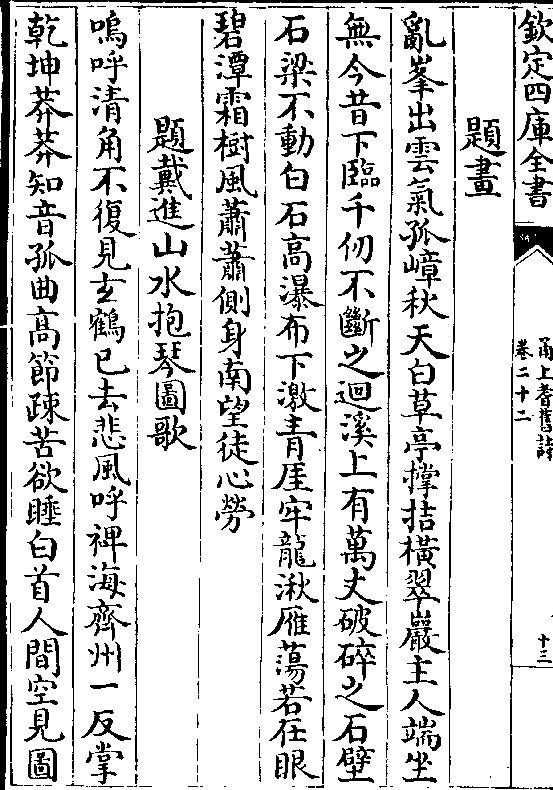 欽定四庫全書
甬上耆舊詩
卷二十二
十三
題畫
亂峯出雲氣孤嶂秋天白草亭撑拮橫翠巖主人端坐
無今昔下臨千仞不斷之迴溪上有萬丈破碎之石壁
石梁不動白石高瀑布下激青厓牢龍湫雁蕩若在眼
碧潭霜樹風蕭蕭側身南望徒心勞
題戴進山水抱琴圖歌
嗚呼清角不復見玄鶴已去悲風呼裨海齊州一反掌
乾坤莽莽知音孤曲高節疎苦欲睡白首人間空見圖